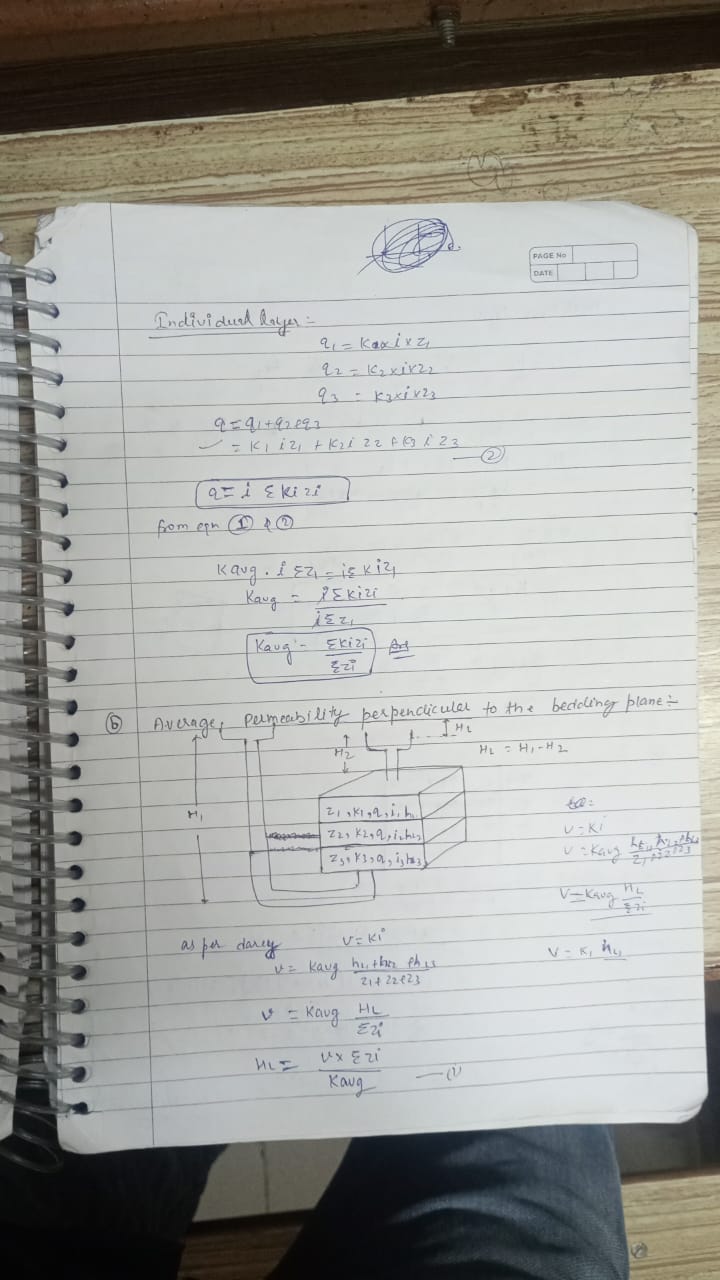 PAGE No
DATE
Individual layer :-
q1 = K1 x i x z1
q2 = K2 x i x z2
q3 = K3 x i x z3
q = q1 + q2 + q3
= K1 i z1 + K2 i z2 + K3 i z3 —②
q = i Σ Ki zi
from eqn ① & ②
Kavg . i Σ z1 = i Σ Ki z1
Kavg = i Σ Ki zi
i Σ z1
Kavg = Σ Ki zi
Σ zi
⑥ Average permeability perpendicular to the bedding plane :-
HL
H2
HL = H1 - H2
H1
z1, K1, q, i, h1
z2, K2, q, i2 hL2
z3, K3, q, i3 hL3
V = Ki
V = Kavg
V = Kavg HL
Σ zi
V = K1 hL1
as per darcy V = Ki
V = Kavg hL1 + hL2 + hL3
z1 + z2 + z3
V = Kavg HL
Σ zi
HL = V x Σ zi —(1)
Kavg